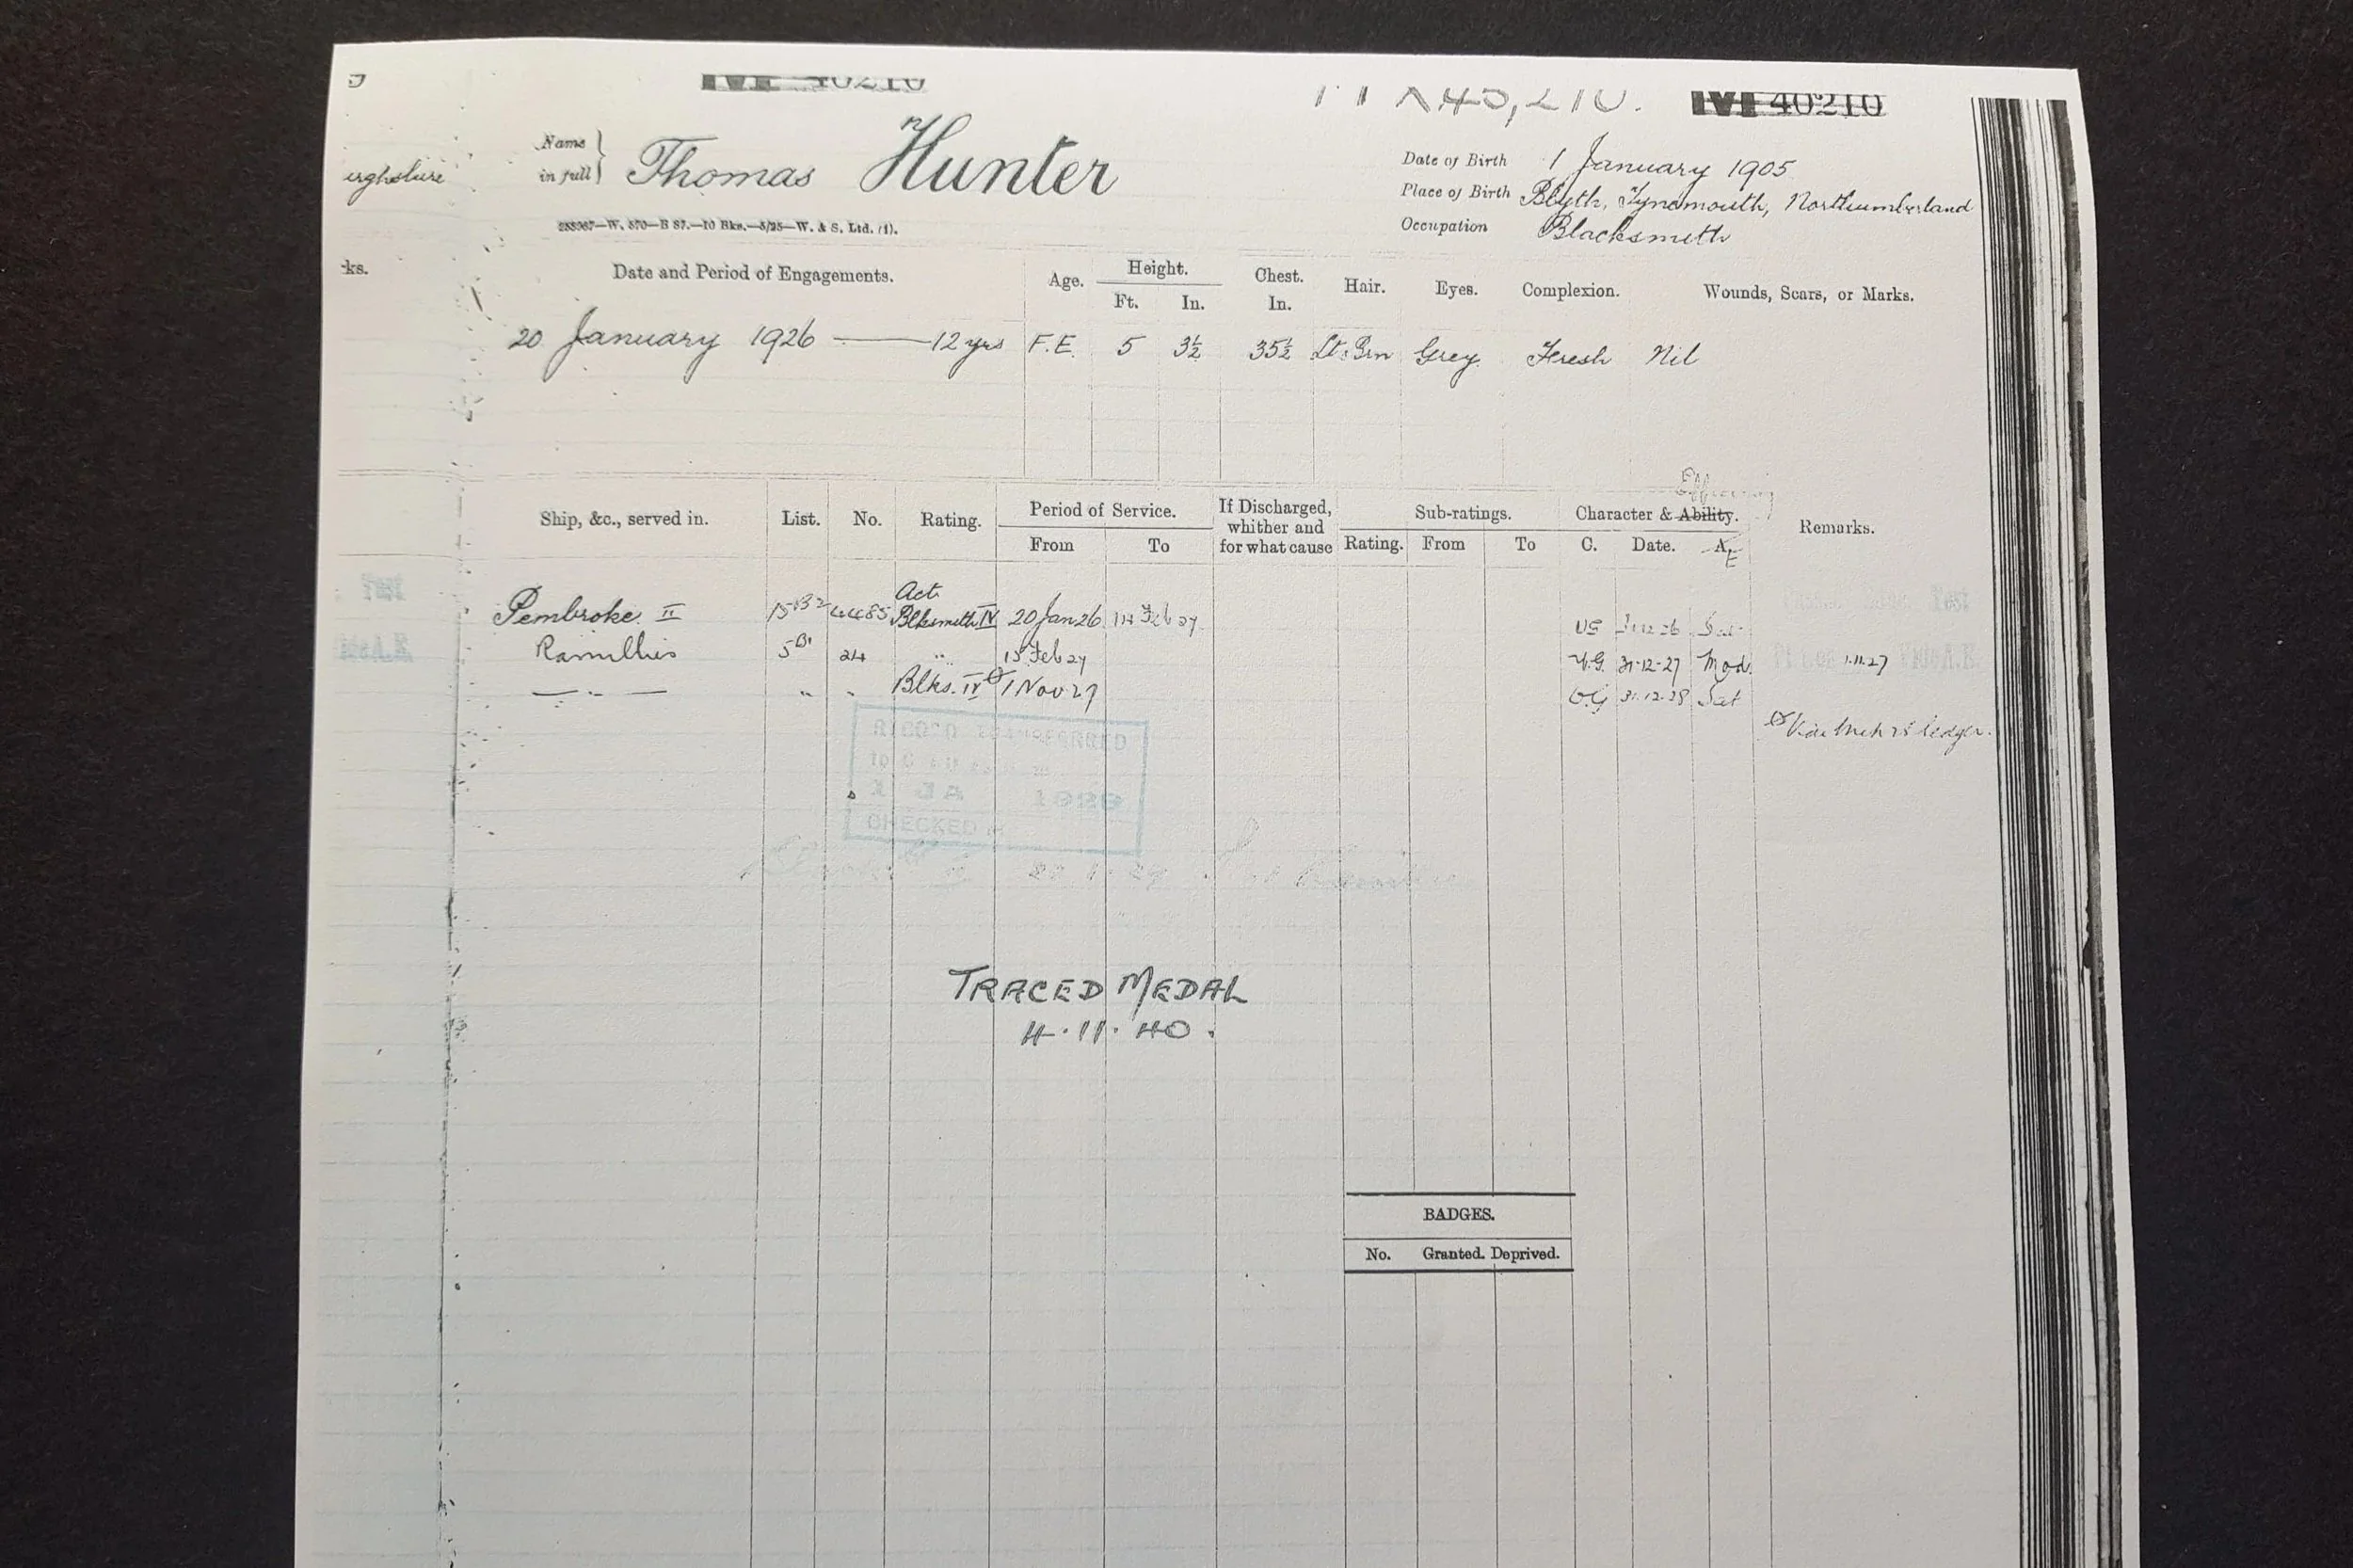 M 40210
MX40,210. M 40210
Name in full} Thomas Hunter
Date of Birth 1 January 1905
Place of Birth Blyth, Tynemouth, Northumberland
Occupation Blacksmith
urghshire
ks.
Date and Period of Engagements. Age. Height. Ft. In. Chest. In. Hair. Eyes. Complexion. Wounds, Scars, or Marks.
20 January 1926 — 12 yrs F.E. 5 3½ 35½ Lt. Brn Grey Fresh Nil
Efficiency
Ship, &c., served in. List. No. Rating. Period of Service. If Discharged, whither and for what cause Sub-ratings. Character & Ability. Remarks.
From To Rating. From To C. Date. A. E
Act
Pembroke II 15B2 4485 Blksmith IV 20 Jan 26 14 Feb 27 VG 31.12.26 Sat
Ramillies 5B1 24 " 15 Feb 27 V.G. 31-12-27 Mod. 1.11.27
— " — " " Blks. IV 1 Nov 27 V.G 31.12.28 Sat
Ledger.
RECORD TRANSFERRED
1 JA 1929
CHECKED
TRACED MEDAL
4.11.40.
BADGES.
No. Granted. Deprived.